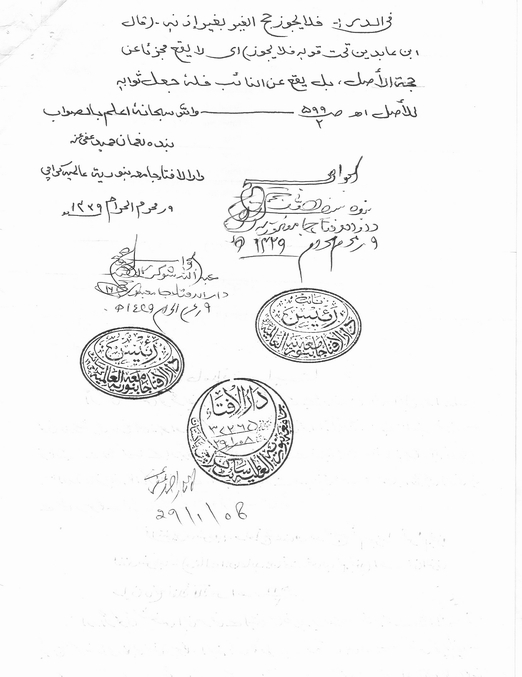 فى الدر :- فلا يجوز حج الغير بغير اذنه - وقال
ابن عابدين تحت قوله فلا يجوز) اى لا يقع مجزئا عن
حجة الأصل، بل يقع عن النائب فله جعل ثوابه
للأصل اھ ص ۵۹۹/۲ والله سبحانه اعلم بالصواب
بنده نعمان عفى عنه
دارالافتاء جامعہ بنوریہ عالمیہ کراچی
۹ محرم الحرام ۱۴۲۹ھ
دارالافتاء جامعہ بنوریہ
۹ محرم الحرام ۱۴۲۹ھ
دارالافتاء جامعہ بنوریہ
۹ محرم الحرام ۱۴۲۹ھ
نائب رئیس
دارالافتاء جامعہ بنوریہ العالمیہ
رئیس
دارالافتاء جامعہ بنوریہ العالمیہ
دارالافتاء
جامعہ بنوریہ العالمیہ سائٹ کراچی
29/1/08